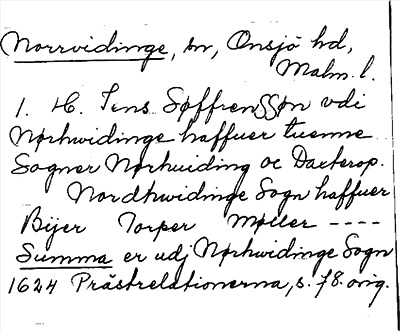 Norrvidinge, sn, Onsjö hd,
Malm. l.
1. H. Jens Søffrensøn vdi
Nørhwidinge haffuer tuenne
Sogner Nørhuiding oc Dacterop.
Nordhwidinge Sogn haffuer
Bijer Torper Møller ----
Summa er udj Nørhwidinge Sogn
1624 Prästrelationerna, s. 78. orig.